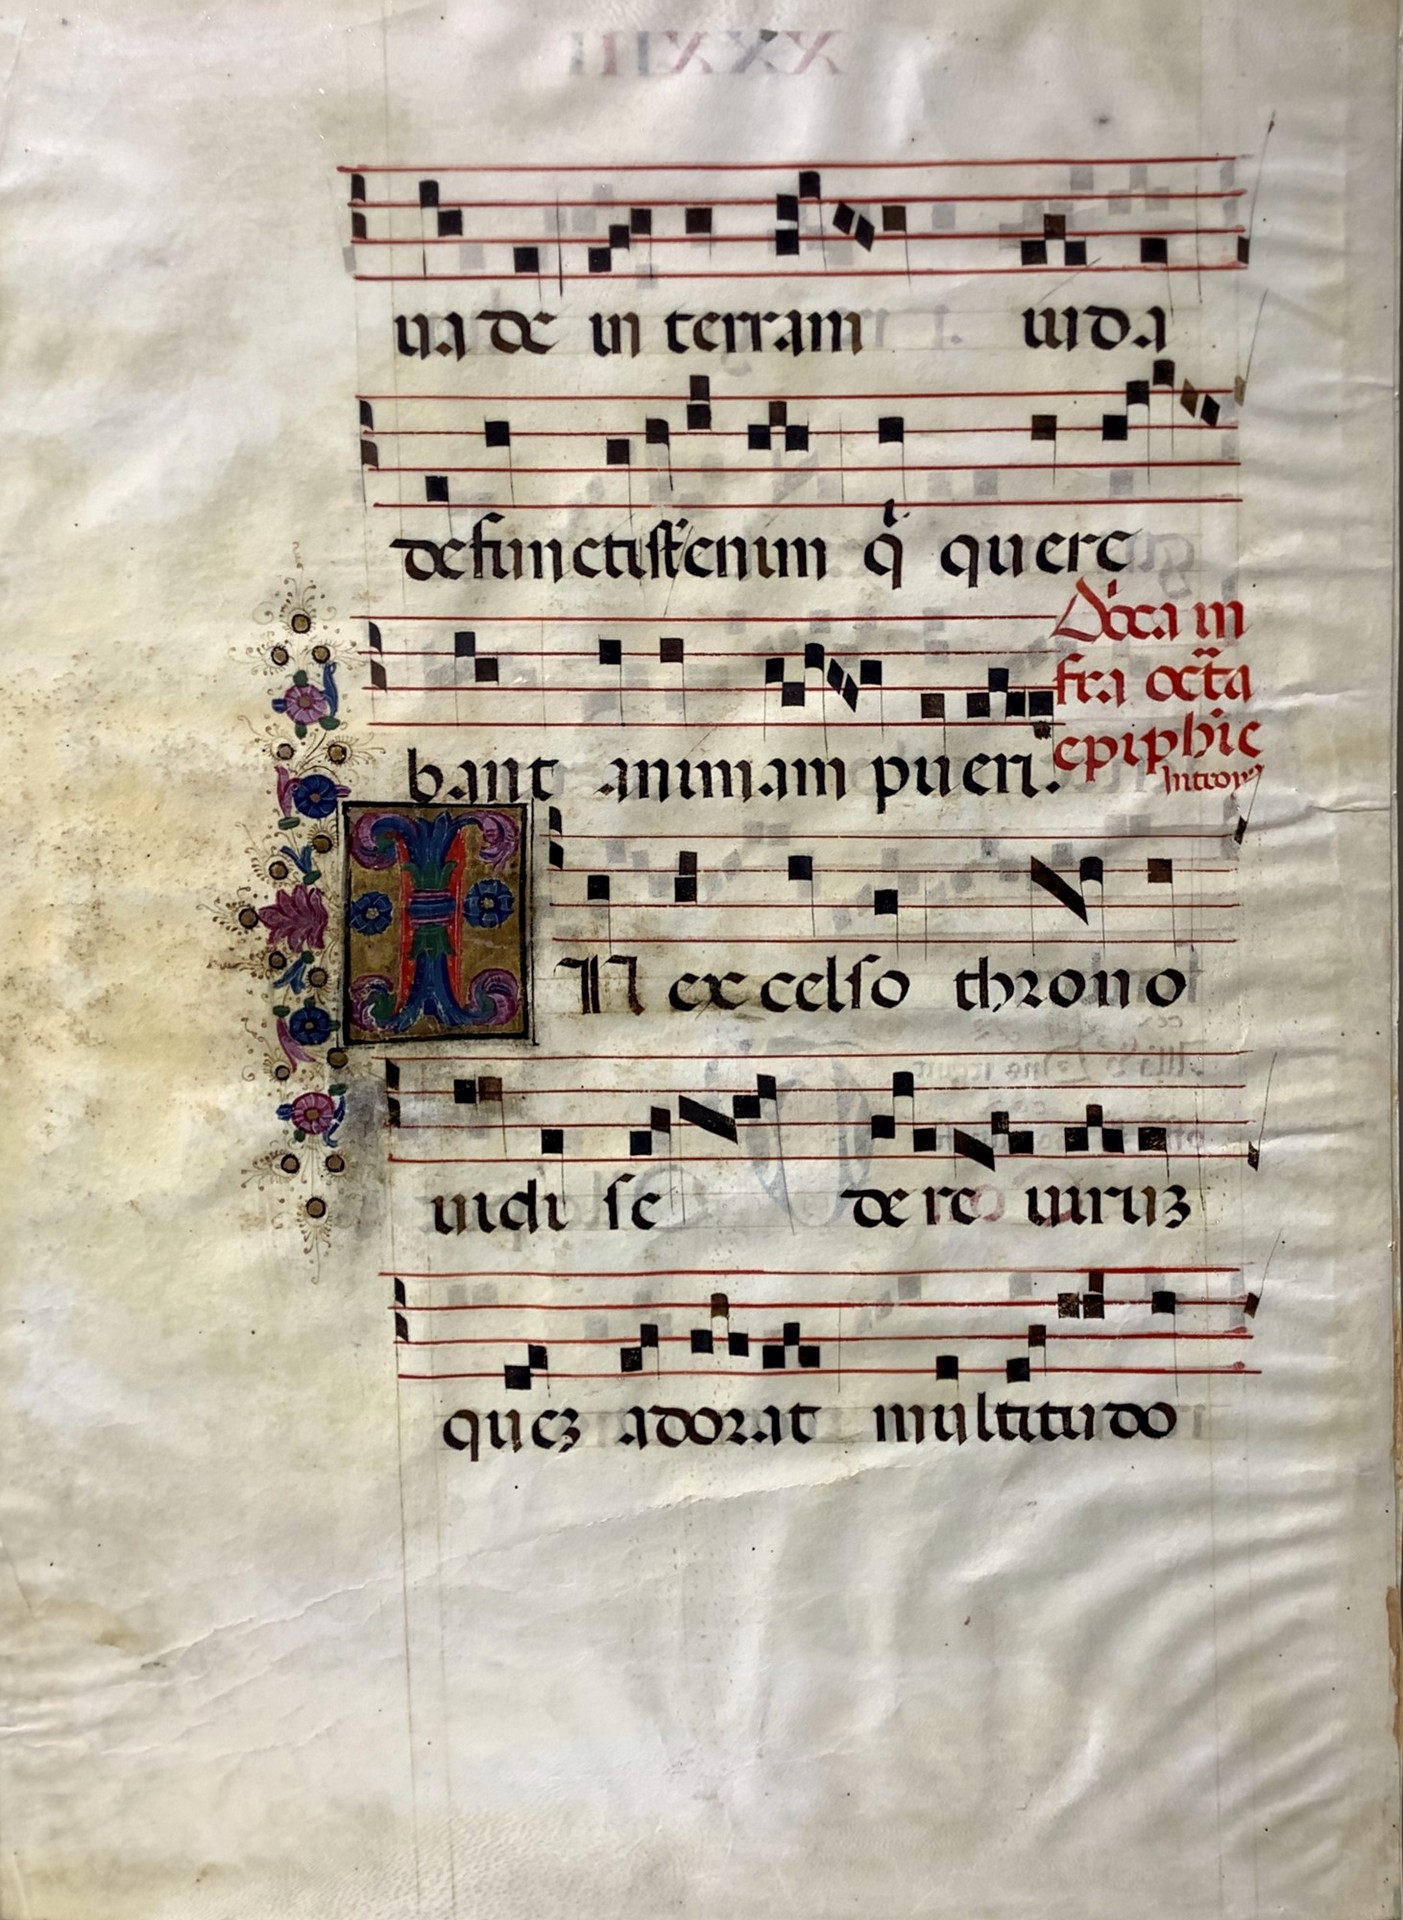 ua de in terram iuda
defuncti st̃ enim q̃ quere
bant animam pueri.
Dñica in
fra octã
epiphie
Introyꝰ
IN excelso throno
uidi se dere uiruʒ
queʒ adorat multitudo